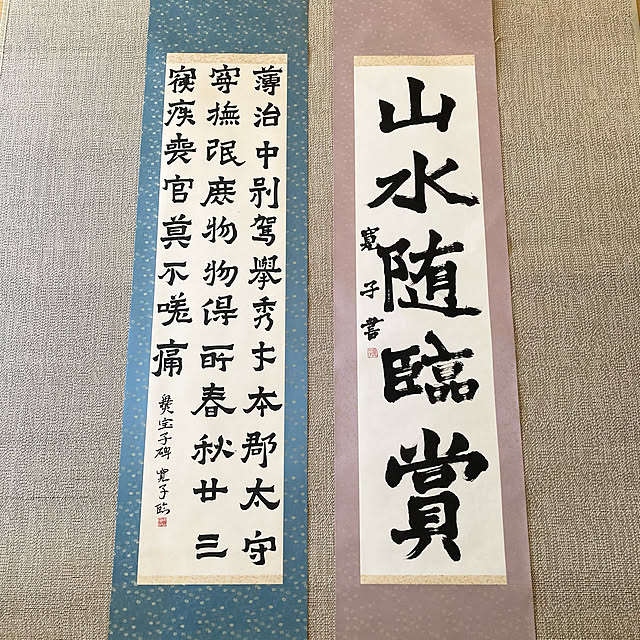 山水随臨賞
寛子書
薄治中别駕舉秀才本郡太守
寧撫氓庶物物得所春秋廿三
寝疾喪官莫不嗟痛
爨宝子碑 寛子臨